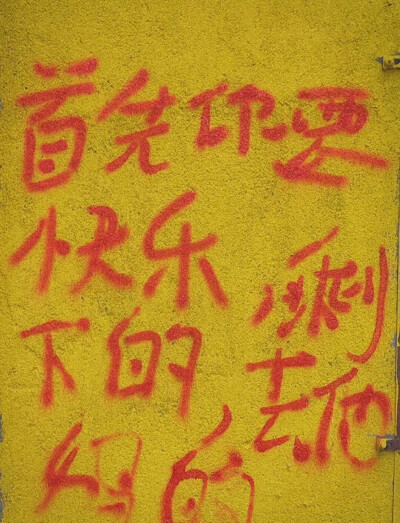 首先你要
快乐 剩
下的 去他
妈的